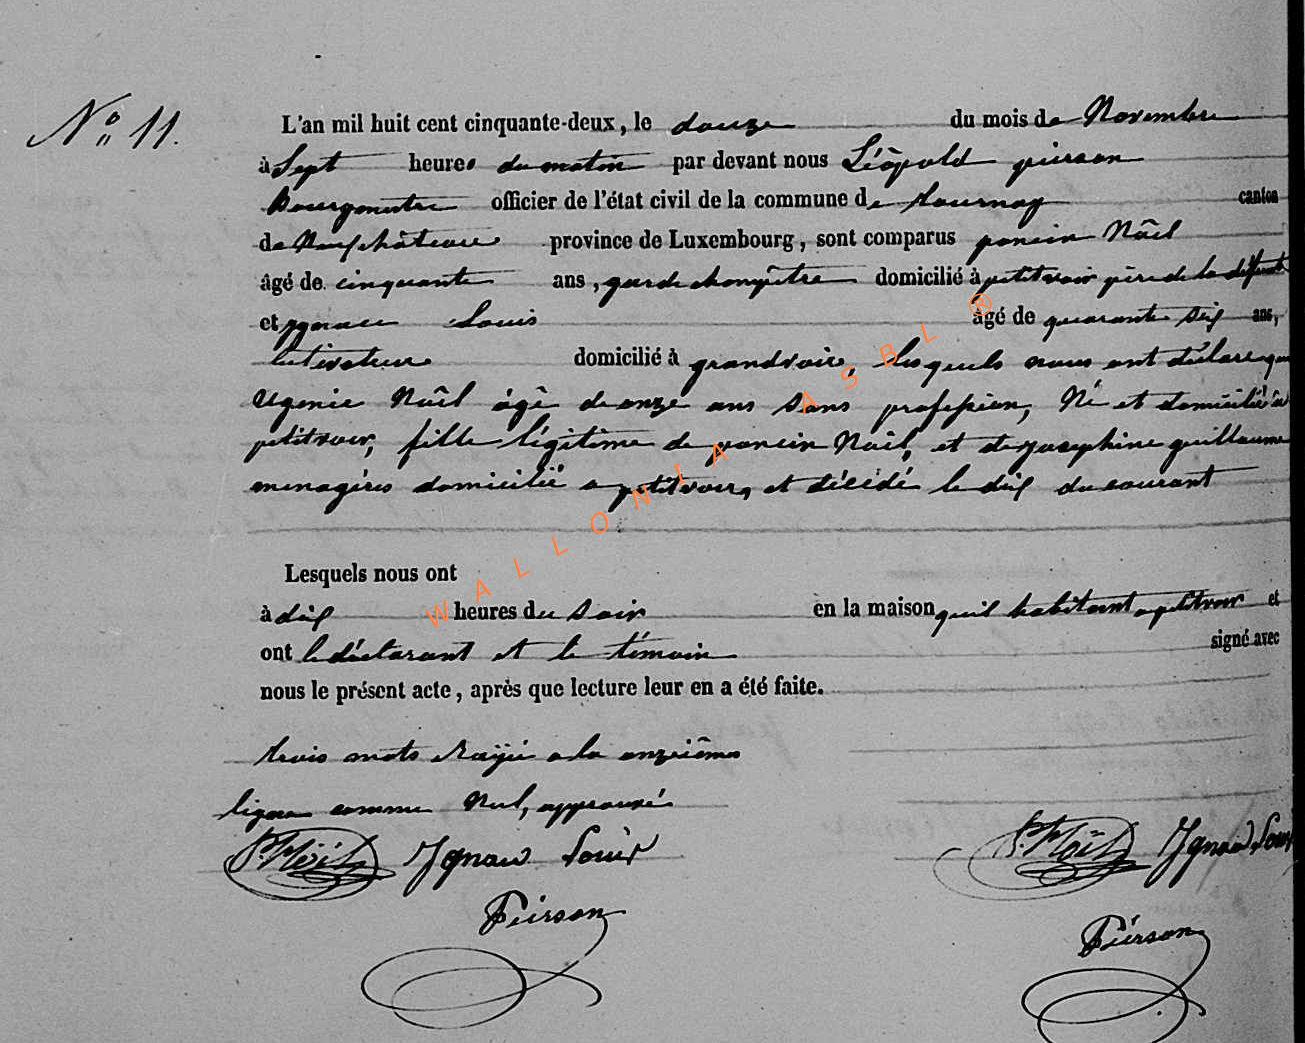 N° 11.
L'an mil huit cent cinquante-deux, le douze du mois de Novembre
à Sept heures du matin par devant nous Léôpold pierson
Bourgmestre officier de l'état civil de la commune de tournay canton
de Neufchâteau province de Luxembourg, sont comparus poncin Nöel
âgé de cinquante ans, garde champêtre domicilié à petitvoir père de la défunt
et Ignace Louis âgé de quarante six ans,
domicilié à grandvoir, Lesquels nous ont déclaré que
Ugenie Nöel âgé de onze ans Sans profession, Né et domicilié à
petitvoir, fille légitime de poncin Nöel, et de josephine guillaume
menagères domicilié a petitvoir, et décédé le dix du courant
Lesquels nous ont
à dix heures du soir en la maison qu'il habitent a petitvoir et
ont le déclarant et le témoin signé avec
nous le présent acte, après que lecture leur en a été faite.
trois mots Rayé a la onzième
ligne comme Nul, approuvé
P. Nöel Ignace Louis
P. Nöel Ignace Louis
Pierson
Pierson
WALLONIA ASBL ®